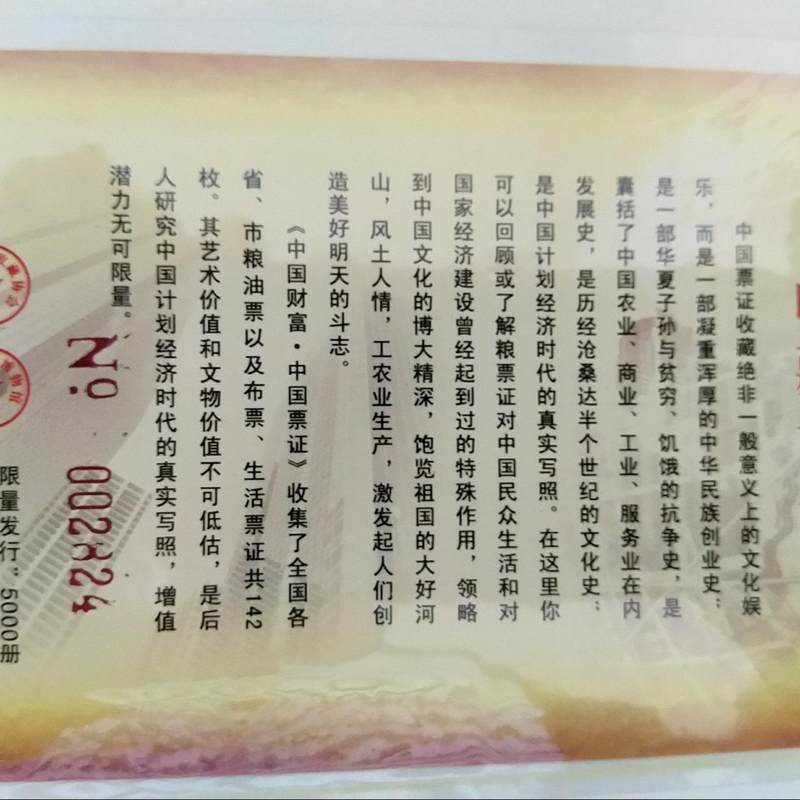 中国票证收藏绝非一般意义上的文化娱
乐，而是一部凝重浑厚的中华民族创业史；
是一部华夏子孙与贫穷、饥饿的抗争史，是
囊括了中国农业、商业、工业、服务业在内
发展史，是历经沧桑达半个世纪的文化史；
是中国计划经济时代的真实写照。在这里你
可以回顾或了解粮票证对中国民众生活和对
国家经济建设曾经起到过的特殊作用，领略
到中国文化的博大精深，饱览祖国的大好河
山，风土人情，工农业生产，激发起人们创
造美好明天的斗志。
《中国财富·中国票证》收集了全国各
省、市粮油票以及布票、生活票证共142
枚。其艺术价值和文物价值不可低估，是后
人研究中国计划经济时代的真实写照，增值
潜力无可限量。
No 002824
限量发行”5000册